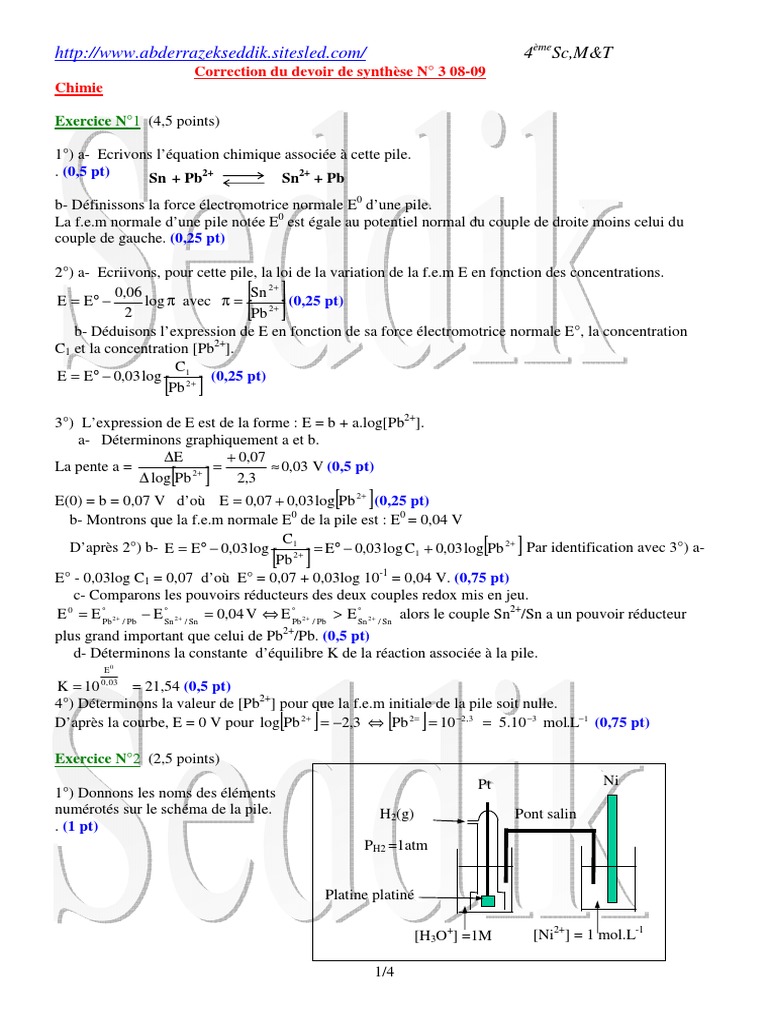 http://www.abderrazekseddik.sitesled.com/ 4ème Sc,M&T
Correction du devoir de synthèse N° 3 08-09
Chimie
Exercice N°1 (4,5 points)
1°) a- Ecrivons l'équation chimique associée à cette pile.
. (0,5 pt) Sn + Pb2+ ⇌ Sn2+ + Pb
b- Définissons la force électromotrice normale E0 d'une pile.
La f.e.m normale d'une pile notée E0 est égale au potentiel normal du couple de droite moins celui du
couple de gauche. (0,25 pt)
2°) a- Ecriivons, pour cette pile, la loi de la variation de la f.e.m E en fonction des concentrations.
E = E° − 0,06/2 log π avec π = [Sn2+]/[Pb2+] (0,25 pt)
b- Déduisons l'expression de E en fonction de sa force électromotrice normale E°, la concentration
C1 et la concentration [Pb2+].
E = E° − 0,03 log C1/[Pb2+] (0,25 pt)
3°) L'expression de E est de la forme : E = b + a.log[Pb2+].
a- Déterminons graphiquement a et b.
La pente a = ΔE/Δlog[Pb2+] = +0,07/2,3 ≈ 0,03 V (0,5 pt)
E(0) = b = 0,07 V d'où E = 0,07 + 0,03 log[Pb2+] (0,25 pt)
b- Montrons que la f.e.m normale E0 de la pile est : E0 = 0,04 V
D'après 2°) b- E = E° − 0,03 log C1/[Pb2+] = E° − 0,03 log C1 + 0,03 log[Pb2+] Par identification avec 3°) a-
E° - 0,03log C1 = 0,07 d'où E° = 0,07 + 0,03log 10-1 = 0,04 V. (0,75 pt)
c- Comparons les pouvoirs réducteurs des deux couples redox mis en jeu.
E0 = E°Pb2+/Pb − E°Sn2+/Sn = 0,04 V ⇔ E°Pb2+/Pb > E°Sn2+/Sn alors le couple Sn2+/Sn a un pouvoir réducteur
plus grand important que celui de Pb2+/Pb. (0,5 pt)
d- Déterminons la constante d'équilibre K de la réaction associée à la pile.
K = 10^(E0/0,03) = 21,54 (0,5 pt)
4°) Déterminons la valeur de [Pb2+] pour que la f.e.m initiale de la pile soit nulle.
D'après la courbe, E = 0 V pour log[Pb2+] = −2,3 ⇔ [Pb2=] = 10−2,3 = 5.10−3 mol.L−1 (0,75 pt)
Exercice N°2 (2,5 points)
1°) Donnons les noms des éléments
numérotés sur le schéma de la pile.
. (1 pt)
Pt Ni
H2(g) Pont salin
PH2 =1atm
Platine platiné
[H3O+] =1M [Ni2+] = 1 mol.L-1
1/4
Seddik
Seddik